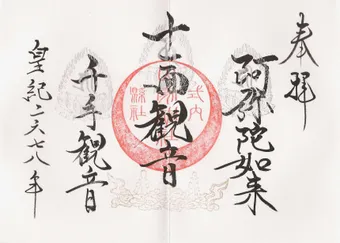 奉拝
阿弥陀如来
十一面観音
千手観音
皇紀二六七八年
式内